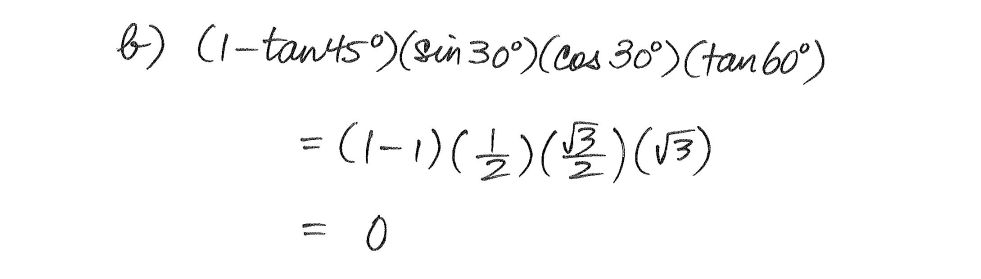 b) (1-tan45°)(sin30°)(cos30°)(tan60°)
= (1-1)(1/2)(√3/2)(√3)
= 0